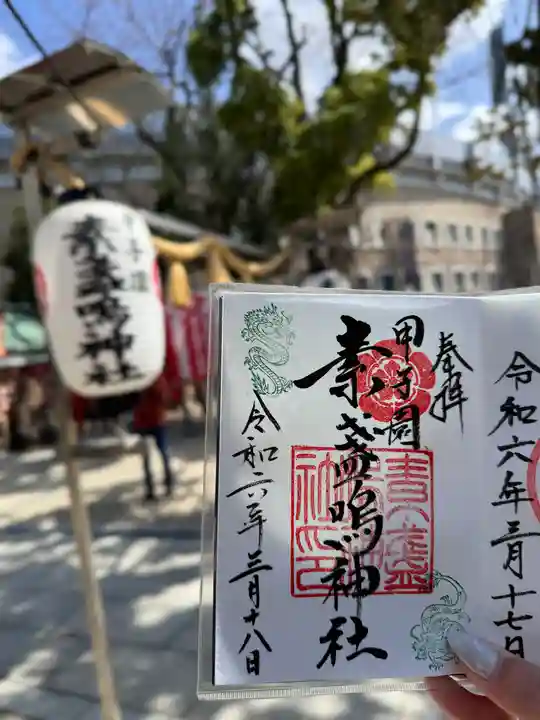 奉拝
甲子園
素盞嗚神社
令和六年三月十八日
令和六年三月十七日
甲子園
素盞嗚神社